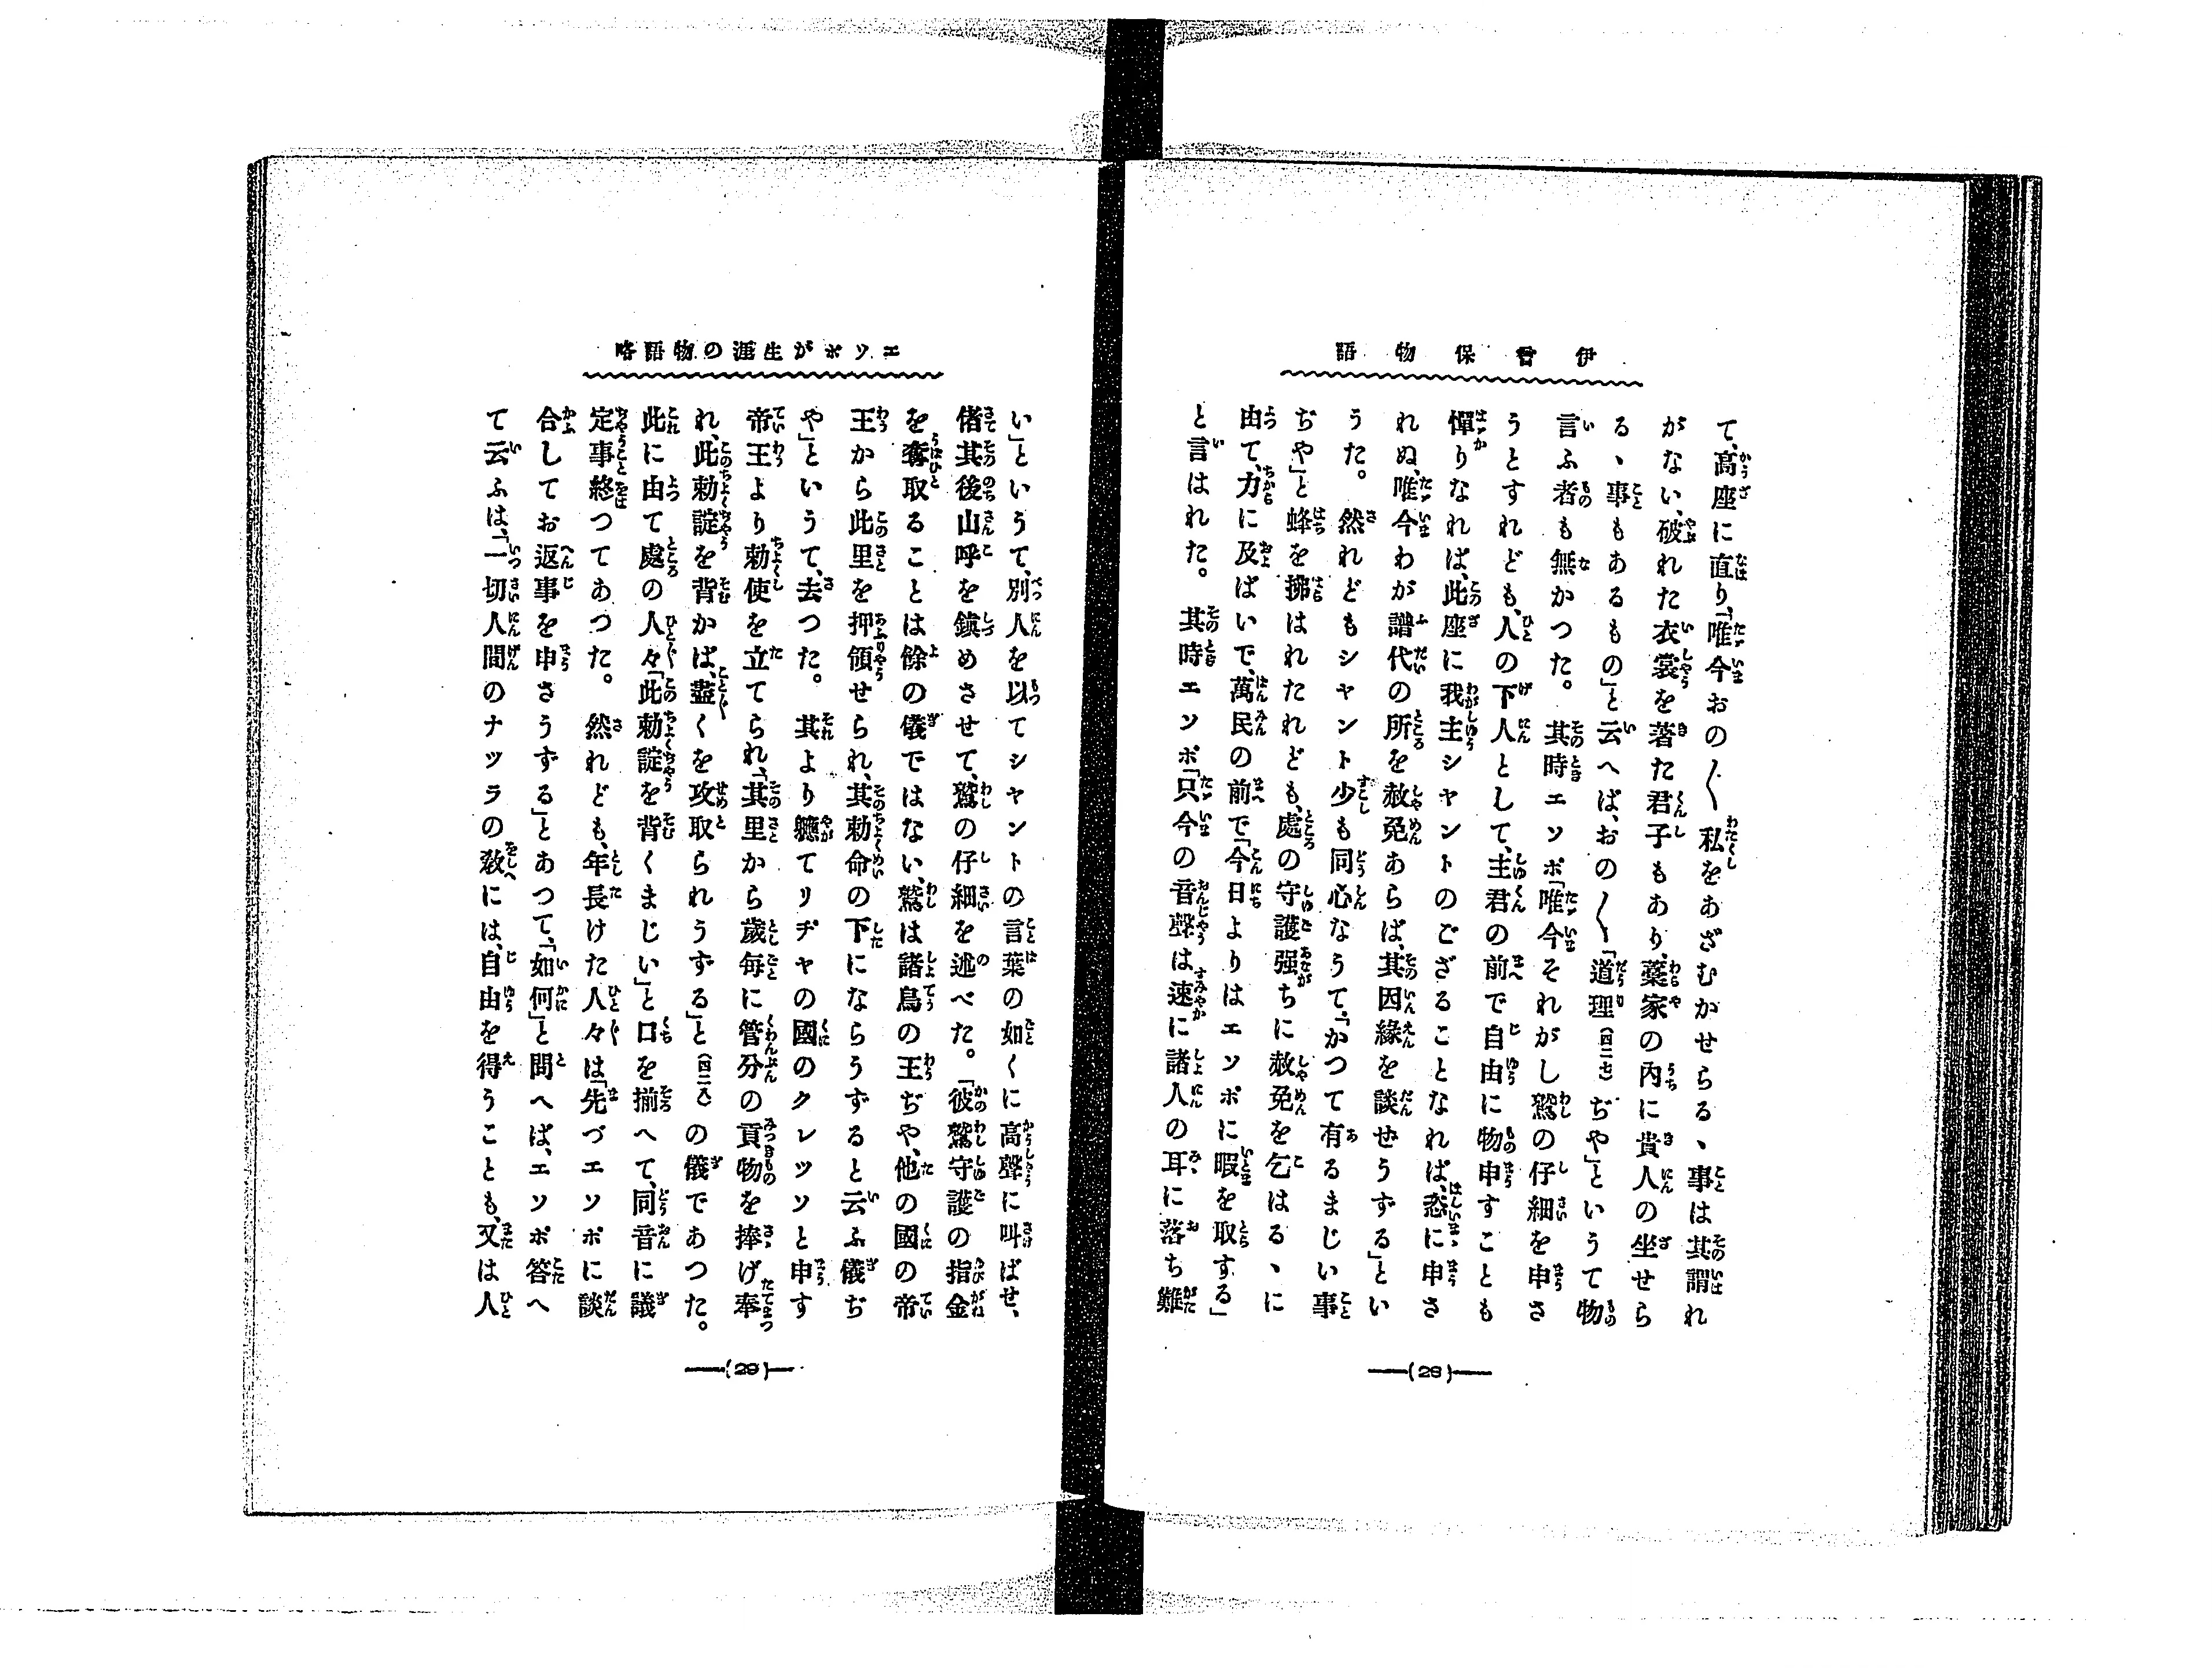 伊曾保物語
て、高座に直り、「唯今おの〳〵私をあざむかせらるゝ事は其謂れ
がない、破れた衣裳を著た君子もあり、藁家の内に貴人の坐せら
るゝ事もあるもの」と云へば、おの〳〵「道理(四二七)ぢや」というて物
言ふ者も無かつた。其時エソポ「唯今それがし鷲の仔細を申さ
うとすれども、人の下人として、主君の前で自由に物申すことも
憚りなれば、此座に我主シャントのござることなれば、恣に申さ
れぬ、唯今わが譜代の所を赦免あらば、其因緣を談ぜうずる」とい
うた。然れどもシャント少も同心なうて、「かつて有るまじい事
ぢや」と蜂を拂はれたれども、處の守護强ちに赦免を乞はるゝに
由て、力に及ばいで、萬民の前で「今日よりはエソポに暇を取する」
と言はれた。其時エソポ「只今の音聲は速に諸人の耳に落ち難
(28)
エソポが生涯の物語略
い」というて、別人を以てシャントの言葉の如くに高聲に叫ばせ、
偖其後山呼を鎭めさせて、鷲の仔細を述べた。「彼鷲守護の指金
を奪取ることは餘の儀ではない、鷲は諸鳥の王ぢや、他の國の帝
王から此里を押領せられ、其勅命の下にならうずると云ふ儀ぢ
や」というて、去つた。其より軈てリヂヤの國のクレッソと申す
帝王より勅使を立てられ、「其里から歲每に管分の貢物を捧げ奉
れ、此勅諚を背かば、盡くを攻取られうずる」と(四二八)の儀であつた。
此に由て處の人々「此勅諚を背くまじい」と口を揃へて、同音に議
定事終つてあつた。然れども、年長けた人々は「先づエソポに談
合してお返事を申さうずる」とあつて、「如何」と問へば、エソポ答へ
て云ふは、「一切人間のナツラの敎には、自由を得うことも、又は人
(29)